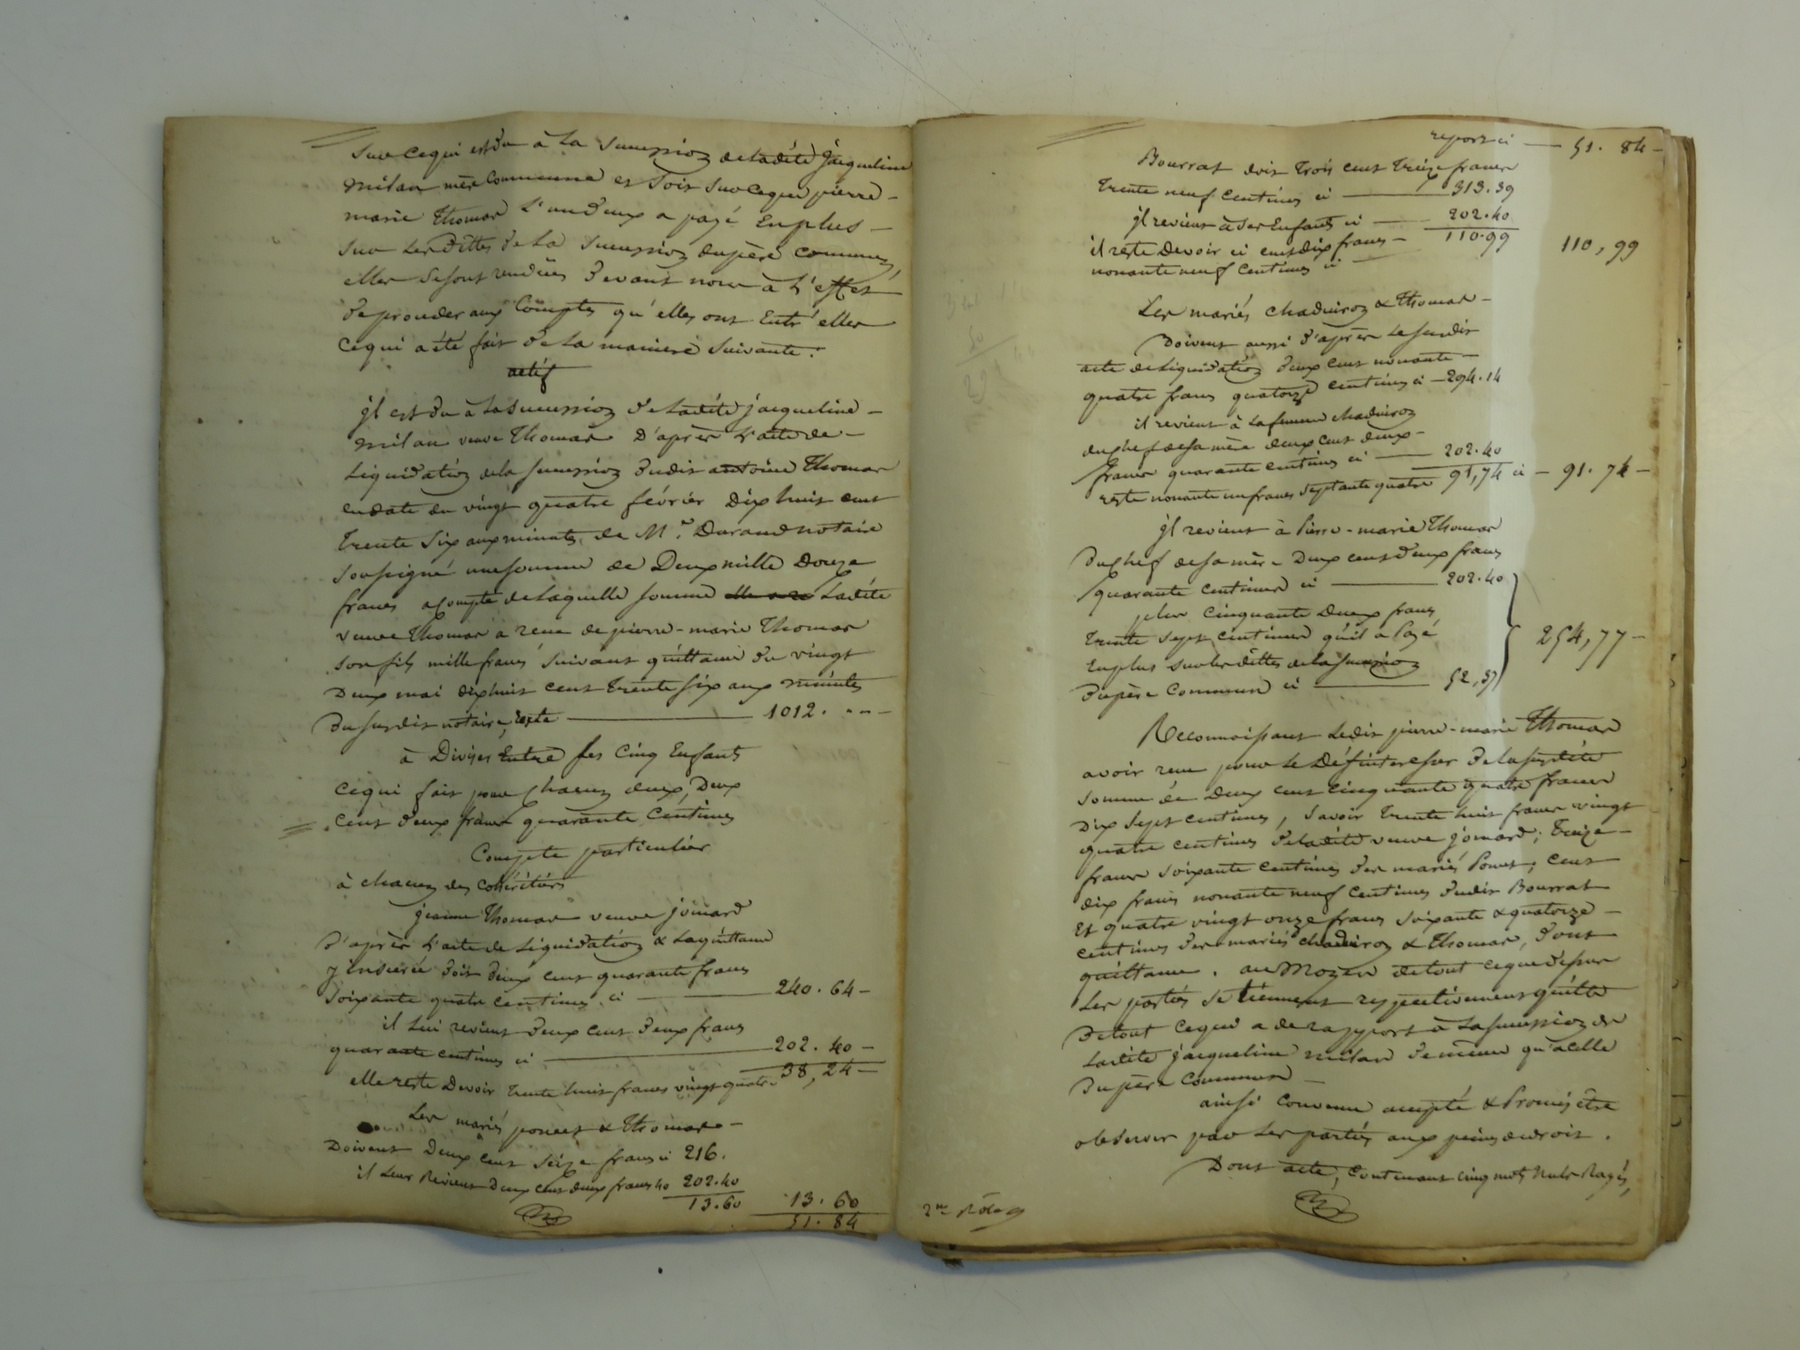 Sur ce qui est du à la succession de ladite jacqueline
milan mère commune et soit sur ce que pierre -
marie Thomas l'un d'eux a payé En plus -
sur les dittes de la succession du père commun,
elles se sont rendües devant nous à l'effet
de proceder aux Comptes qu'elles ont Entr'elles
ce qui a été fait de la maniere suivante.
actif
jl est du à la succession de ladite jacqueline -
milan veuve Thomas D'après l'acte de -
Liquidation de la succession dudit antoine Thomas
en date du vingt quatre février dix huit cent
trente six aux minutes de Me. Durand notaire
soussigné une somme de Deux mille Douze
francs acompte de laquelle somme ladite
veuve Thomas a reçu de pierre-marie Thomas
son fils mille francs suivant quittance du vingt
deux mai dix huit cent trente six aux minutes
du susdit notaire, reste 1012. " " -
à Diviser Entre ses Cinq Enfants
ce qui fait pour chacun deux, Deux
cent deux francs quarante Centimes
Compte particulier
à chacun des cohéritiers
jeanne Thomas veuve jomard
d'après l'acte de Liquidation & la quittance
y insérée doit deux cent quarante francs
soixante quatre centimes ci 240. 64 -
il lui revient deux cent deux francs
quarante centimes ci 202. 40 -
elle reste Devoir trente huit francs vingt quatre 38, 24 -
Les mariés poncet & Thomas -
Doivent Deux cent seize francs ci 216.
il leur Revient Deux cent deux francs 40 202.40
13.60 13. 60
51. 84
report ci - 51. 84 -
Bourrat doit trois cent treize francs
trente neuf centimes ci 313.39
jl revient à ses Enfants ci 202.40
il reste Devoir ci cent dix francs - 110.99 110,99
nonante neuf centimes ci
Les mariés chaduiron & Thomas -
Doivent aussi d'après le susdit
acte de liquidation deux cent nonante -
quatre francs quatorze centimes ci - 294.14
il revient à la femme chaduiron
du chef de sa mère deux cent deux -
francs quarante centimes ci 202.40
reste nonante un francs septante quatre 91,74 ci - 91. 74 -
jl revient à Pierre-marie Thomas
du chef de sa mère Deux cent deux francs
quarante centimes ci 202.40
plus cinquante Deux francs
trente sept centimes qu'il a payé
En plus sur les dittes de la succession
du père Commun ci 52,37
254,77 -
Reconnoissant ledit pierre-marie Thomas
avoir reçu pour le Désintéresser de la susdite
somme de Deux cent cinquante quatre francs
Dix sept centimes, savoir trente huit francs vingt
quatre centimes de ladite veuve jomard; treize -
francs soixante centimes des mariés Poncet; cent
dix francs nonante neuf centimes dudit Bourrat
Et quatre vingt onze francs soixante & quatorze -
centimes des mariés chaduiron & Thomas, dont
quittance. au Moyen de tout ce que dessus
Les parties se tiennent respectivement quitte
De tout ce qui a de rapport à la succession de
ladite jacqueline milan de même qu'à celle
du père commun -
ainsi convenu accepté & promis être
observer par les parties aux peines de droit.
Dont acte, Contenant cinq mots nuls Rayés,
2me Rôle